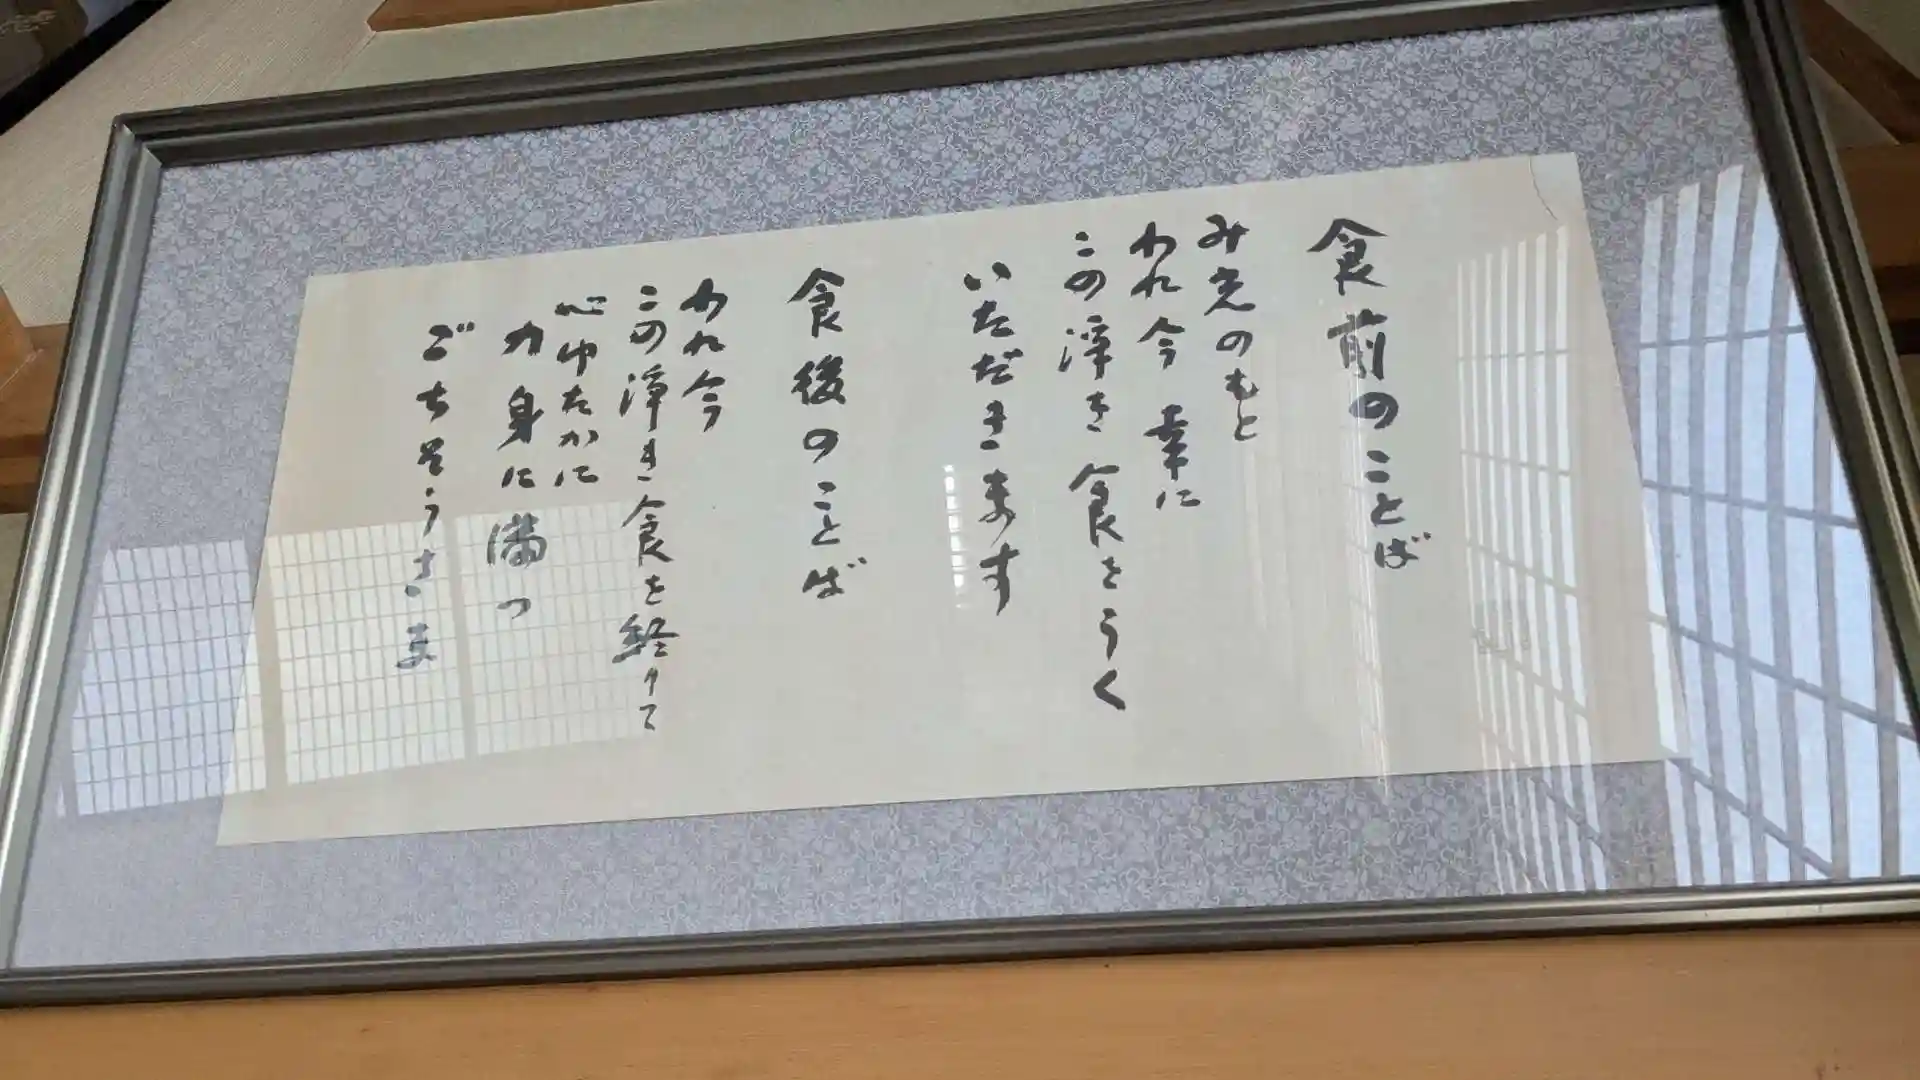 食前のことば
み光のもと
われ今 幸に
この浄き 食をうく
いただきます
食後のことば
われ今
この浄き食を終りて
心ゆたかに
力身に満つ
ごちそうさま